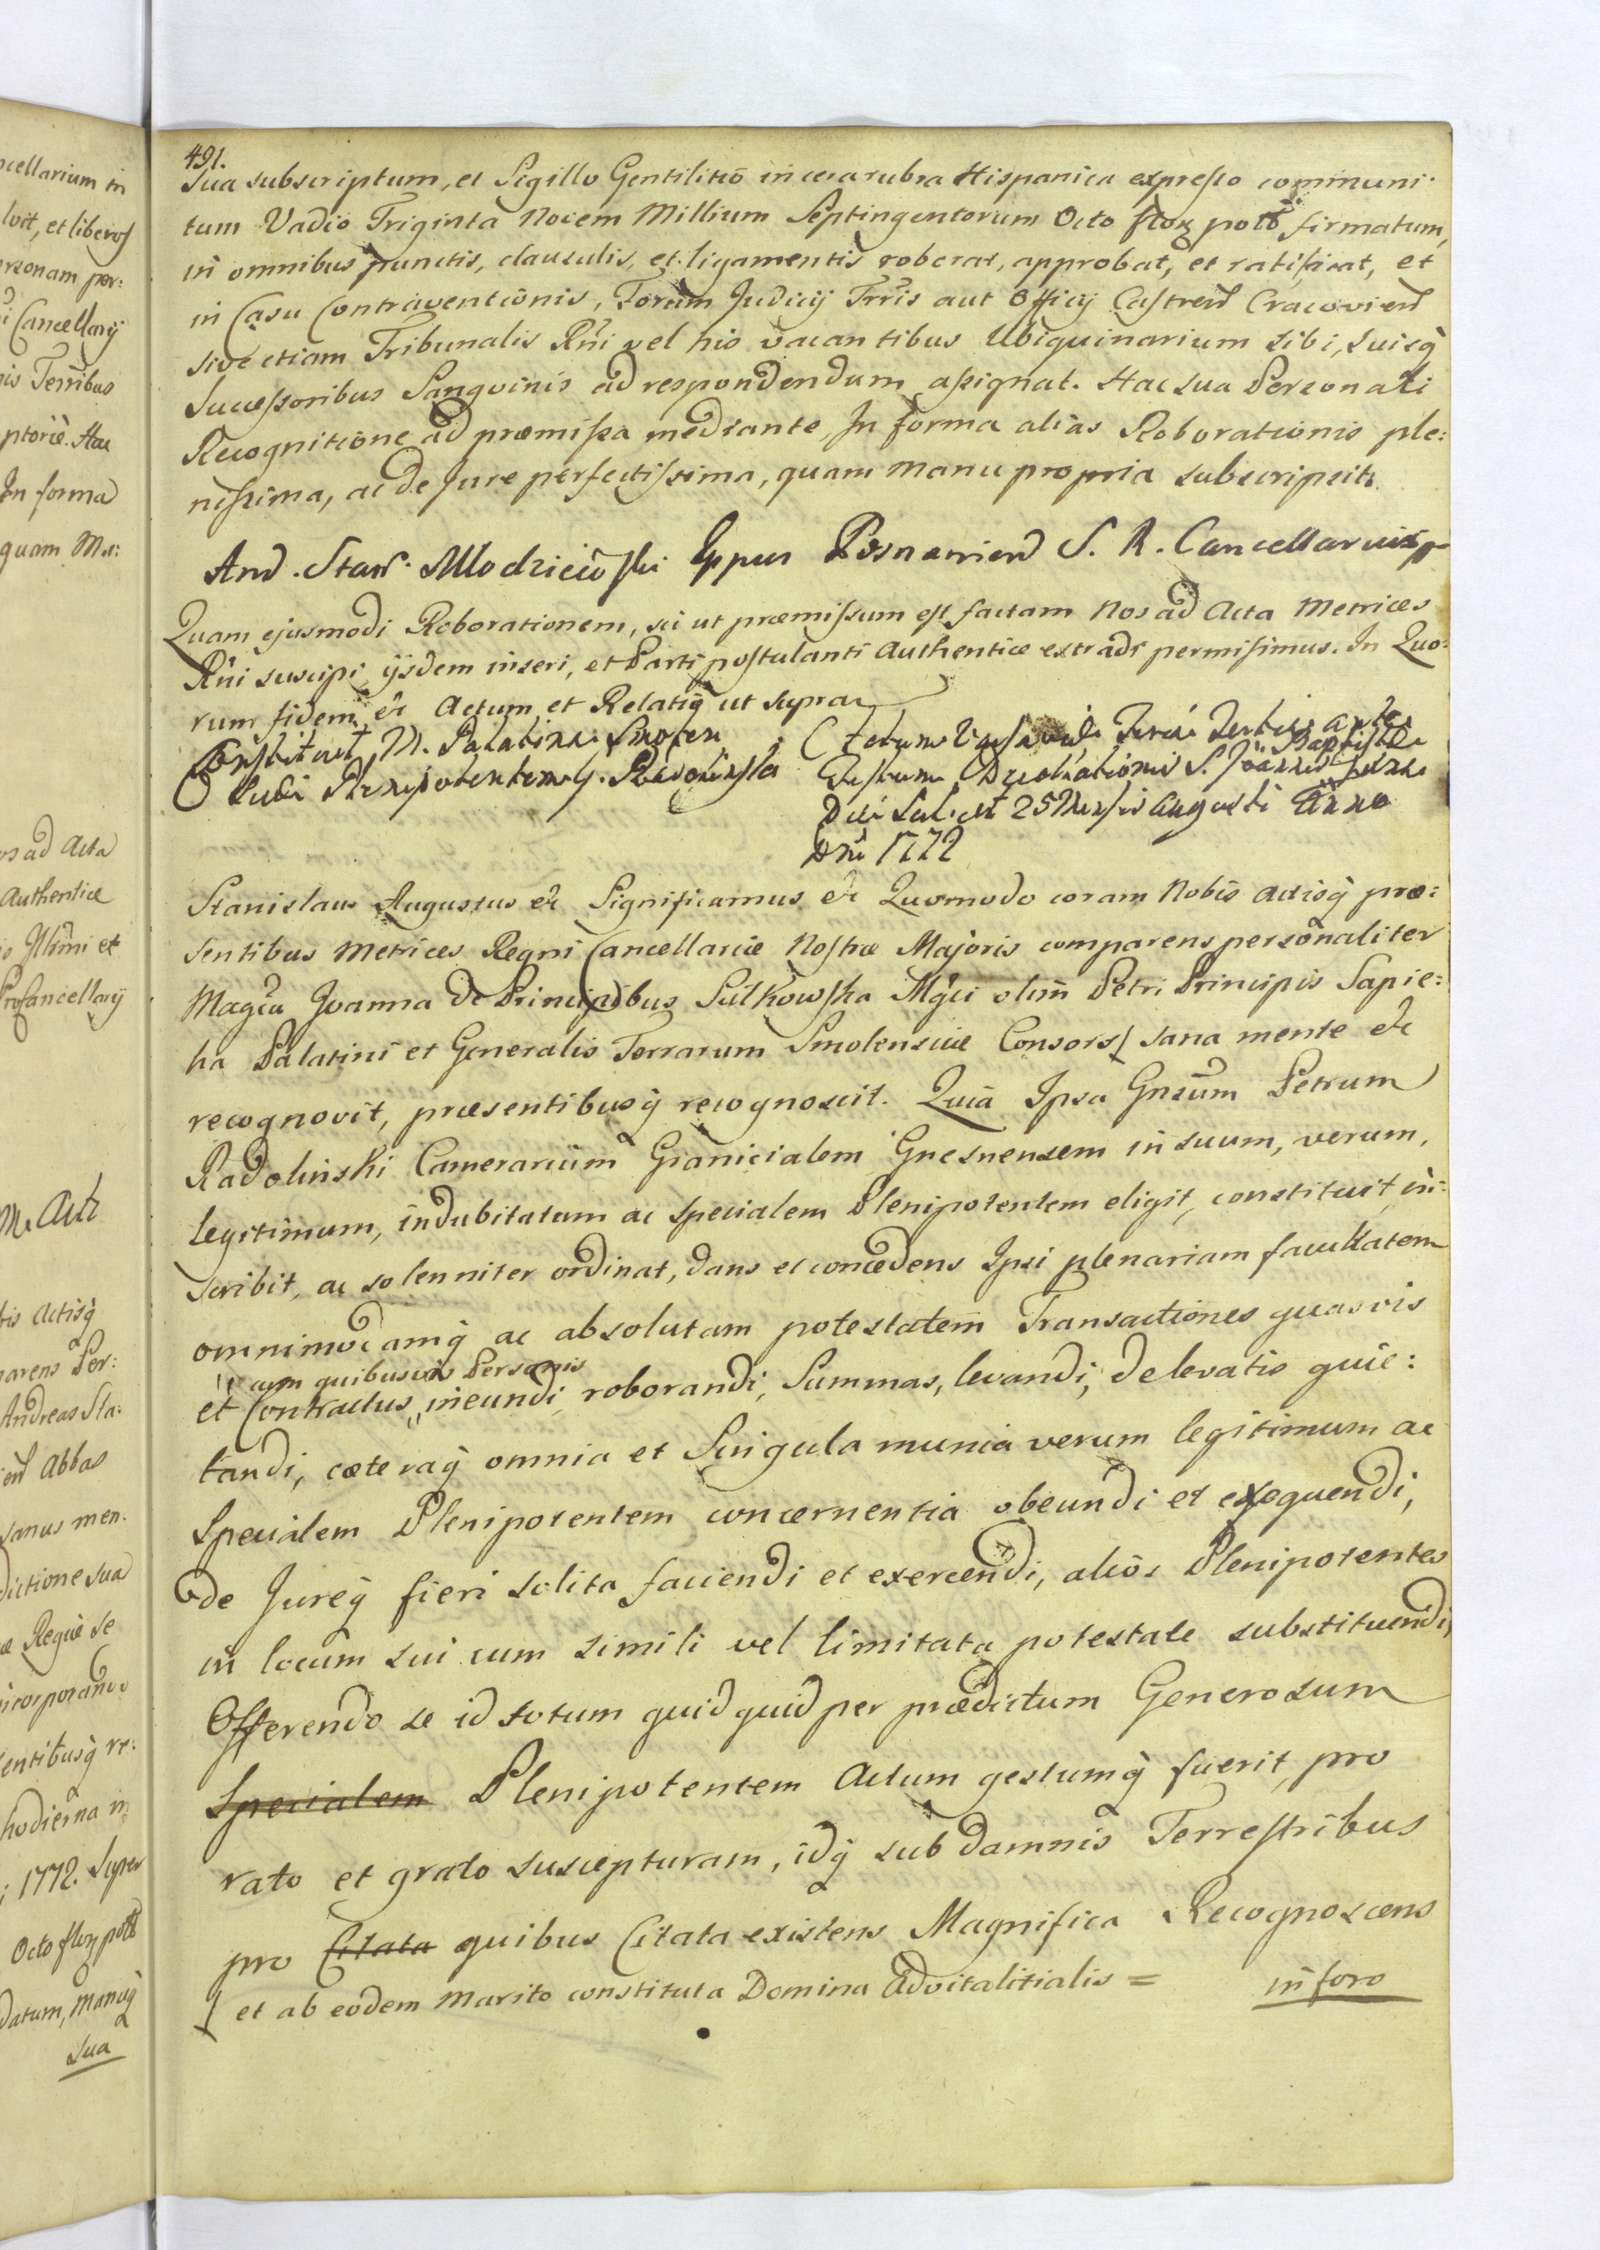 491.
Sua subscriptum, et Sigillo Gentilitio in cera rubra Hispanica expresso communi:
tum Vadio Triginta Novem Millium Septingentorum Octo flor polo firmatum,
in omnibus punctis, clausulis, et ligamentis roborat, approbat, et ratificat, et
in Casu Contraventionis, Forum Judicij Trris aut Officij Castren Cracovien
sive etiam Tribunalis Rni vel his vacantibus Ubiquinarium sibi, suisq
Successoribus Sangvinis ad respondendum assignat. Hac sua Personali
Recognitione ad præmissa mediante, In forma alias Roborationis ple:
nissima, ac de Jure perfectissima, quam manu propria subscripsit.
And. Stan. Mlodzieiowski Eppus Posnanien S. R. Cancellarius
Quam ejusmodi Roborationem, sic ut præmissum est factam Nos ad Acta Metrices
Rni suscipi ijsdem inseri, et Parti postulanti Authentice extradi permisimus. In Quo:
rum fidem &c Actum et Relatiq ut supra
Constituit M. Palatina Smolen
sibi Plenipotentem G. Radolinski
Actum Varsaviæ Feria Tertia ante
Festum Decollationis S. Joannis Baptistæ
Die scilicet 25 Mensis Augusti Anno
Dni 1772
Stanislaus Augustus &c Significamus &c Quomodo coram Nobis Actisq præ:
sentibus Metrices Regni Cancellariæ Nostræ Majoris comparens personaliter
Magca Joanna de Principibus Sulkowska Mgci olim Petri Principis Sapie:
ha Palatini et Generalis Terrarum Smolensciæ Consors/ sana mente &c
recognovit, præsentibusq recognoscit. Quia Ipsa Gnsum Petrum
Radolinski Camerarium Granicialem Gnesnensem in suum, verum,
legitimum, indubitatum ac specialem Plenipotentem eligit, constituit, in:
scribit, ac solenniter ordinat, dans et concedens Ipsi plenariam facultatem
omnimodamq ac absolutam potestatem Transactiones quasvis
cum quibusvis Personis
et Contractus ineundi, roborandi, Summas, levandi, de levatis quie:
tandi, cæteraq omnia et Singula munia verum legitimum ac
Specialem Plenipotentem concernentia obeundi et exequendi,
de Jureq fieri solita faciendi et exercendi, alios Plenipotentes
in locum sui cum simili vel limitata potestate substituendi,
Offerendo se id totum quidquid per prædictum Generosum
Specialem Plenipotentem Actum gestumq fuerit, pro
rato et grato suscepturam, idq sub damnis Terrestribus
pro Citata quibus Citata existens Magnifica Recognoscens
/ et ab eodem Marito constituta Domina Advitalitialis =
in foro